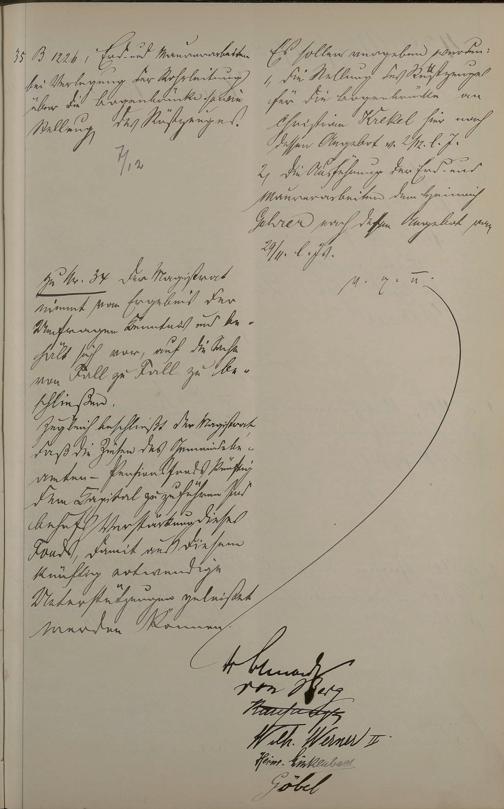 35 B 1226, Erd- und Maurerarbeiten
bei Verlegung der Rohrleitung
über die Bogenbrücke sowie
Stellung des Rüstzeuges.
7/12
Es sollen vergeben werden:
1, die Stellung des Rüstzeuges
für die Bogenbrücke an
Christian Krekel hier nach
dessen Angebot v. 2/12. l. J.
2, die Ausführung der Erd- und
Maurerarbeiten dem Heinrich
nach dessen Angebot vom
29/11. l. Js.
v. g. u.
Zu Nr. 34 Der Magistrat
nimmt vom Ergebnis der
Umfragen Kenntnis und be-
hält sich vor, auf die Sache
von Fall zu Fall zu be-
schließen.
Zugleich beschließt der Magistrat,
daß die Zinsen des Gemeindebe-
amten-Pensionsfonds künftig
dem Capital zuzuführen sind
behufs Verstärkung dieses
Fonds, damit aus diesem
künftig notwendige
Unterstützungen geleistet
werden können.
von Berg
Wilh. Werner II.
Göbel